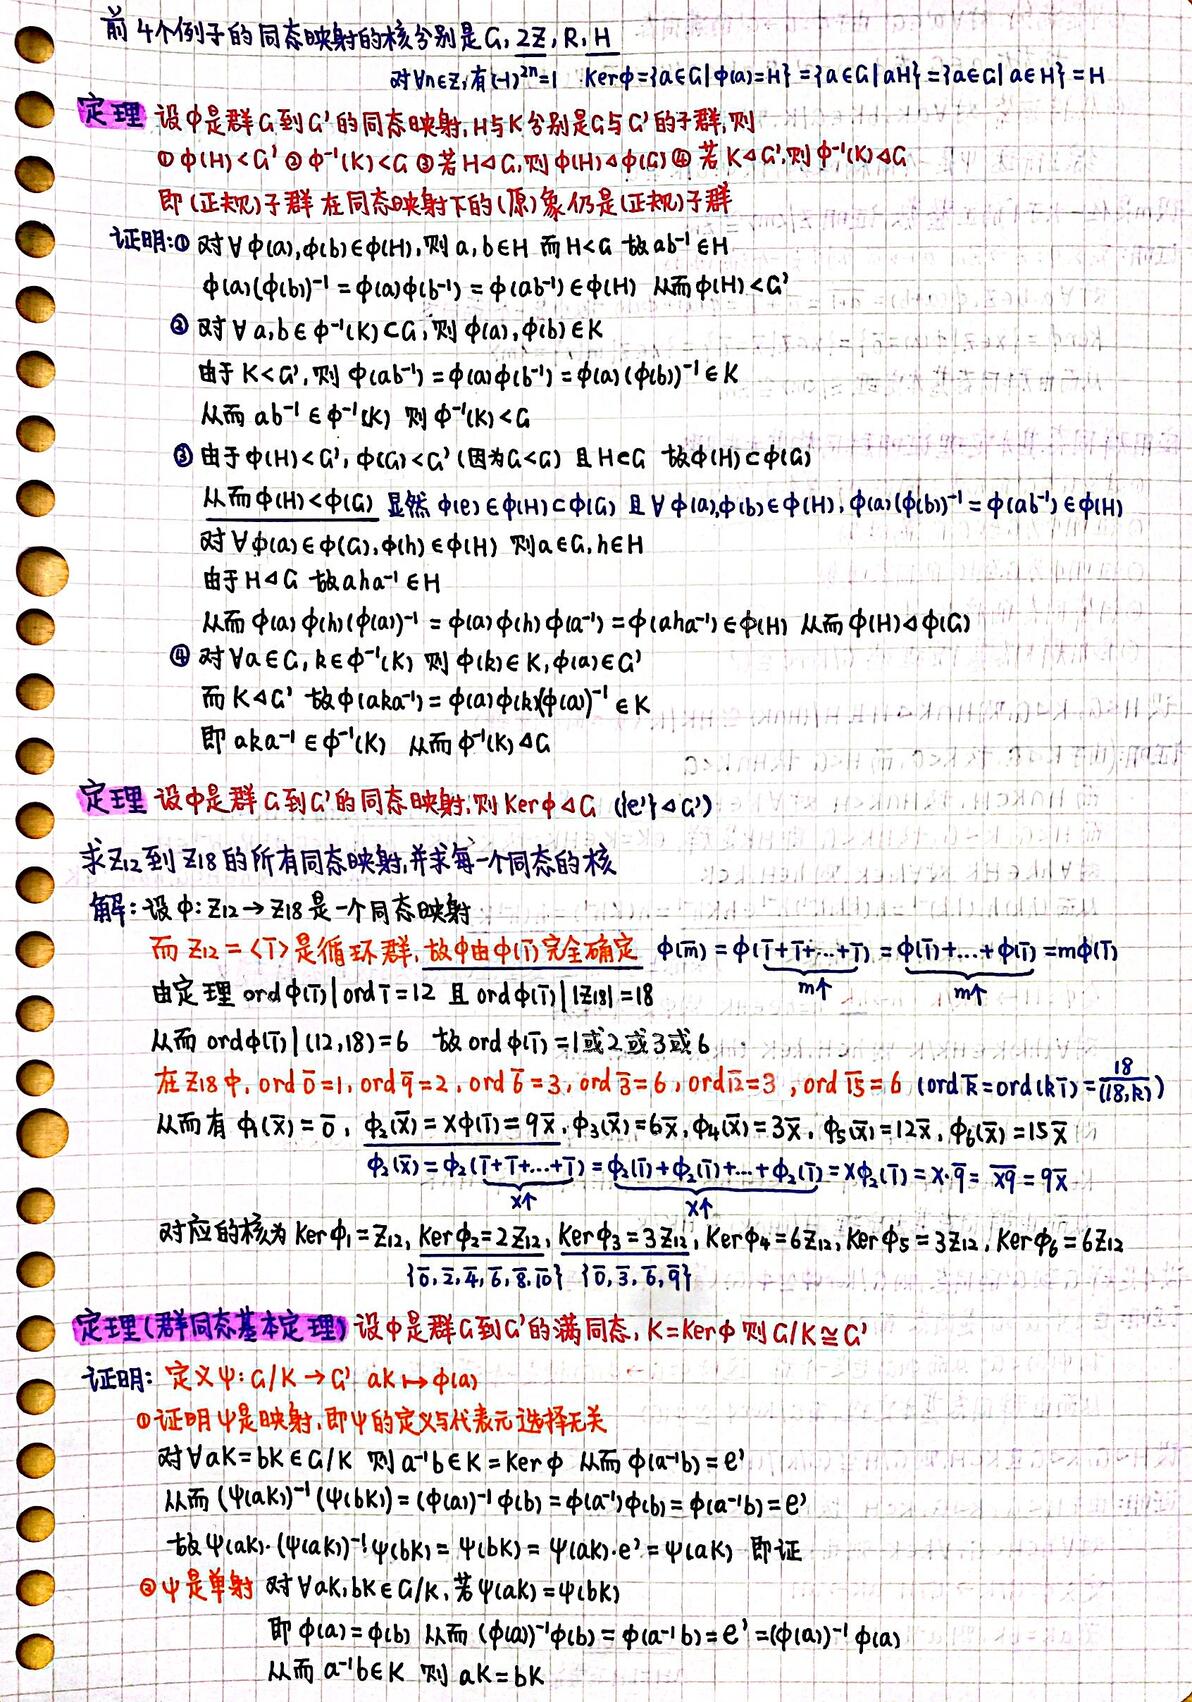 前4个例子的同态映射的核分别是G, 2Z, R, H
对∀n∈Z,有(-1)²ⁿ=1 Kerφ={a∈G|φ(a)=H}={a∈G|aH}={a∈G|a∈H}=H
定理 设φ是群G到G'的同态映射,H与K分别是G与G'的子群,则
① φ(H)<G' ② φ⁻¹(K)<G ③ 若H◁G,则φ(H)◁φ(G) ④ 若K◁G',则φ⁻¹(K)◁G
即(正规)子群在同态映射下的(原)象仍是(正规)子群
证明:① 对∀φ(a),φ(b)∈φ(H),则a,b∈H 而H<G 故ab⁻¹∈H
φ(a)(φ(b))⁻¹=φ(a)φ(b⁻¹)=φ(ab⁻¹)∈φ(H) 从而φ(H)<G'
② 对∀a,b∈φ⁻¹(K)⊂G,则φ(a),φ(b)∈K
由于K<G',则φ(ab⁻¹)=φ(a)φ(b⁻¹)=φ(a)(φ(b))⁻¹∈K
从而ab⁻¹∈φ⁻¹(K) 则φ⁻¹(K)<G
③ 由于φ(H)<G',φ(G)<G'(因为G<G) 且H⊂G 故φ(H)⊂φ(G)
从而φ(H)<φ(G) 显然φ(e)∈φ(H)⊂φ(G) 且∀φ(a),φ(b)∈φ(H),φ(a)(φ(b))⁻¹=φ(ab⁻¹)∈φ(H)
对∀φ(a)∈φ(G),φ(h)∈φ(H) 则a∈G,h∈H
由于H◁G 故aha⁻¹∈H
从而φ(a)φ(h)(φ(a))⁻¹=φ(a)φ(h)φ(a⁻¹)=φ(aha⁻¹)∈φ(H) 从而φ(H)◁φ(G)
④ 对∀a∈G,k∈φ⁻¹(K) 则φ(k)∈K,φ(a)∈G'
而K◁G' 故φ(aka⁻¹)=φ(a)φ(k)(φ(a))⁻¹∈K
即aka⁻¹∈φ⁻¹(K) 从而φ⁻¹(K)◁G
定理 设φ是群G到G'的同态映射,则Kerφ◁G ({e'}◁G')
求Z₁₂到Z₁₈的所有同态映射,并求每一个同态的核
解:设φ:Z₁₂→Z₁₈是一个同态映射
而Z₁₂=<1̄>是循环群,故φ由φ(1̄)完全确定 φ(m̄)=φ(1̄+1̄+...+1̄)=φ(1̄)+...+φ(1̄)=mφ(1̄)
m个 m个
由定理ordφ(1̄)|ord1̄=12 且ordφ(1̄)||Z₁₈|=18
从而ordφ(1̄)|(12,18)=6 故ordφ(1̄)=1或2或3或6
在Z₁₈中,ord0̄=1,ord9̄=2,ord6̄=3,ord3̄=6,ord1̄2̄=3,ord1̄5̄=6 (ordk̄=ord(k1̄)=18/(18,k))
从而有φ₁(x̄)=0̄,φ₂(x̄)=xφ(1̄)=9x̄,φ₃(x̄)=6x̄,φ₄(x̄)=3x̄,φ₅(x̄)=12x̄,φ₆(x̄)=15x̄
φ₂(x̄)=φ₂(1̄+1̄+...+1̄)=φ₂(1̄)+φ₂(1̄)+...+φ₂(1̄)=xφ₂(1̄)=x·9̄=x̄9̄=9x̄
x个 x个
对应的核为Kerφ₁=Z₁₂,Kerφ₂=2Z₁₂,Kerφ₃=3Z₁₂,Kerφ₄=6Z₁₂,Kerφ₅=3Z₁₂,Kerφ₆=6Z₁₂
{0̄,2̄,4̄,6̄,8̄,1̄0̄} {0̄,3̄,6̄,9̄}
定理(群同态基本定理) 设φ是群G到G'的满同态,K=Kerφ则G/K≅G'
证明: 定义ψ:G/K→G' aK↦φ(a)
① 证明ψ是映射,即ψ的定义与代表元选择无关
对∀aK=bK∈G/K 则a⁻¹b∈K=Kerφ 从而φ(a⁻¹b)=e'
从而(ψ(aK))⁻¹(ψ(bK))=(φ(a))⁻¹φ(b)=φ(a⁻¹)φ(b)=φ(a⁻¹b)=e'
故ψ(aK)·(ψ(aK))⁻¹ψ(bK)=ψ(bK)=ψ(aK)·e'=ψ(aK) 即证
② ψ是单射 对∀aK,bK∈G/K,若ψ(aK)=ψ(bK)
即φ(a)=φ(b) 从而(φ(a))⁻¹φ(b)=φ(a⁻¹b)=e'=(φ(a))⁻¹φ(a)
从而a⁻¹b∈K 则aK=bK